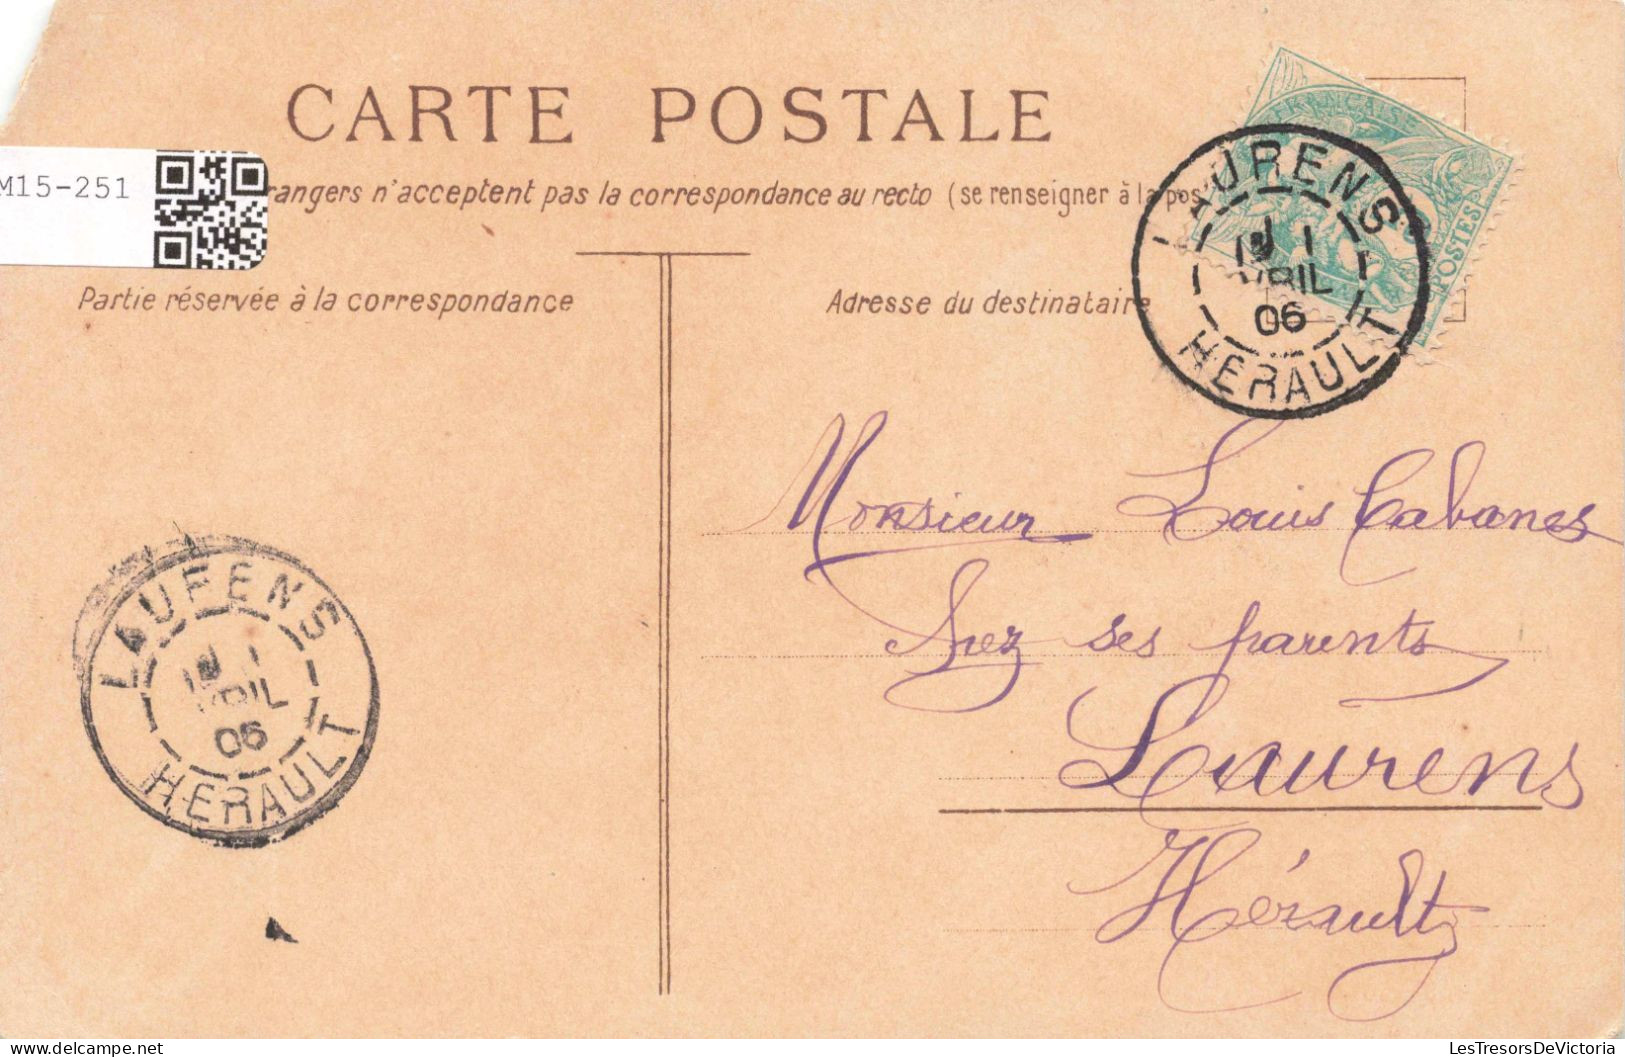 CARTE POSTALE
M15-251
rangers n'acceptent pas la correspondance au recto (se renseigner à la pos
Partie réservée à la correspondance
Adresse du destinataire
FRANÇAISE
POSTES
LAURENS
1
AVRIL
06
HERAULT
Monsieur Louis Cabanes
chez ses parents
Laurens
Hérault
LAURENS
1
AVRIL
06
HERAULT
delcampe.net
LesTresorsDeVictoria